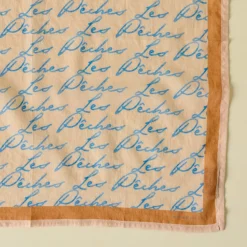 Les Pêches Les Pêches
Les Pêches Les Pêches
Les Pêches Les Pêches
Les Pêches Les Pêches
Les Pêches Les Pêches
Les Pêches Les Pêches
Pêches Les Pêches Les